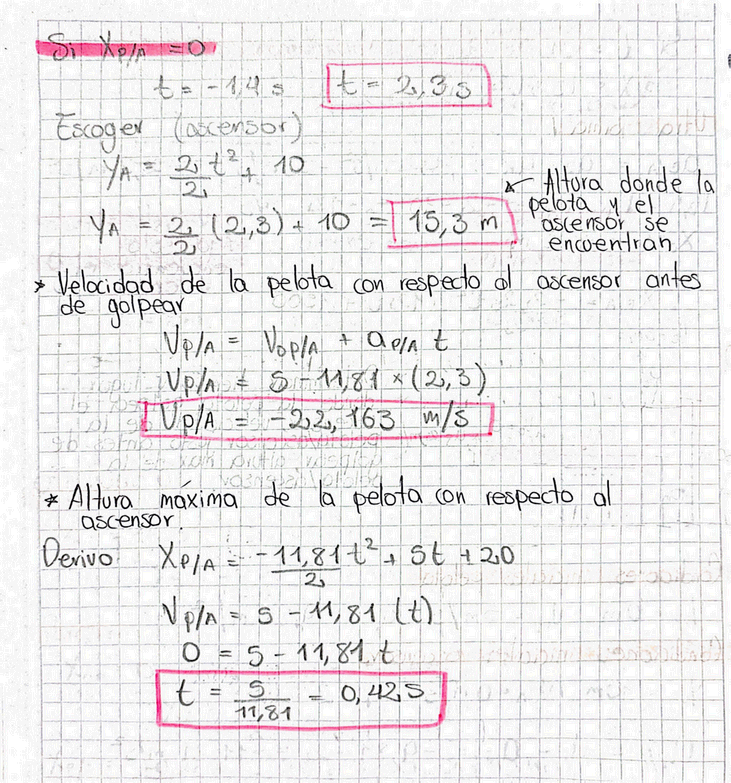 Si X_P/A = 0
t = -1,4 s t = 2,3 s
Escoger (ascensor)
Y_A = 2/2 t² + 10
Y_A = 2/2 (2,3) + 10 = 15,3 m
Altura donde la
pelota y el
ascensor se
encuentran
* Velocidad de la pelota con respecto al ascensor antes
de golpear
V_P/A = V_0P/A + a_P/A t
V_P/A = 5 - 11,81 × (2,3)
V_P/A = -22,163 m/s
* Altura máxima de la pelota con respecto al
ascensor.
Derivo X_P/A = -11,81/2 t² + 5t + 20
V_P/A = 5 - 11,81 (t)
0 = 5 - 11,81 t
t = 5/11,81 = 0,42 s